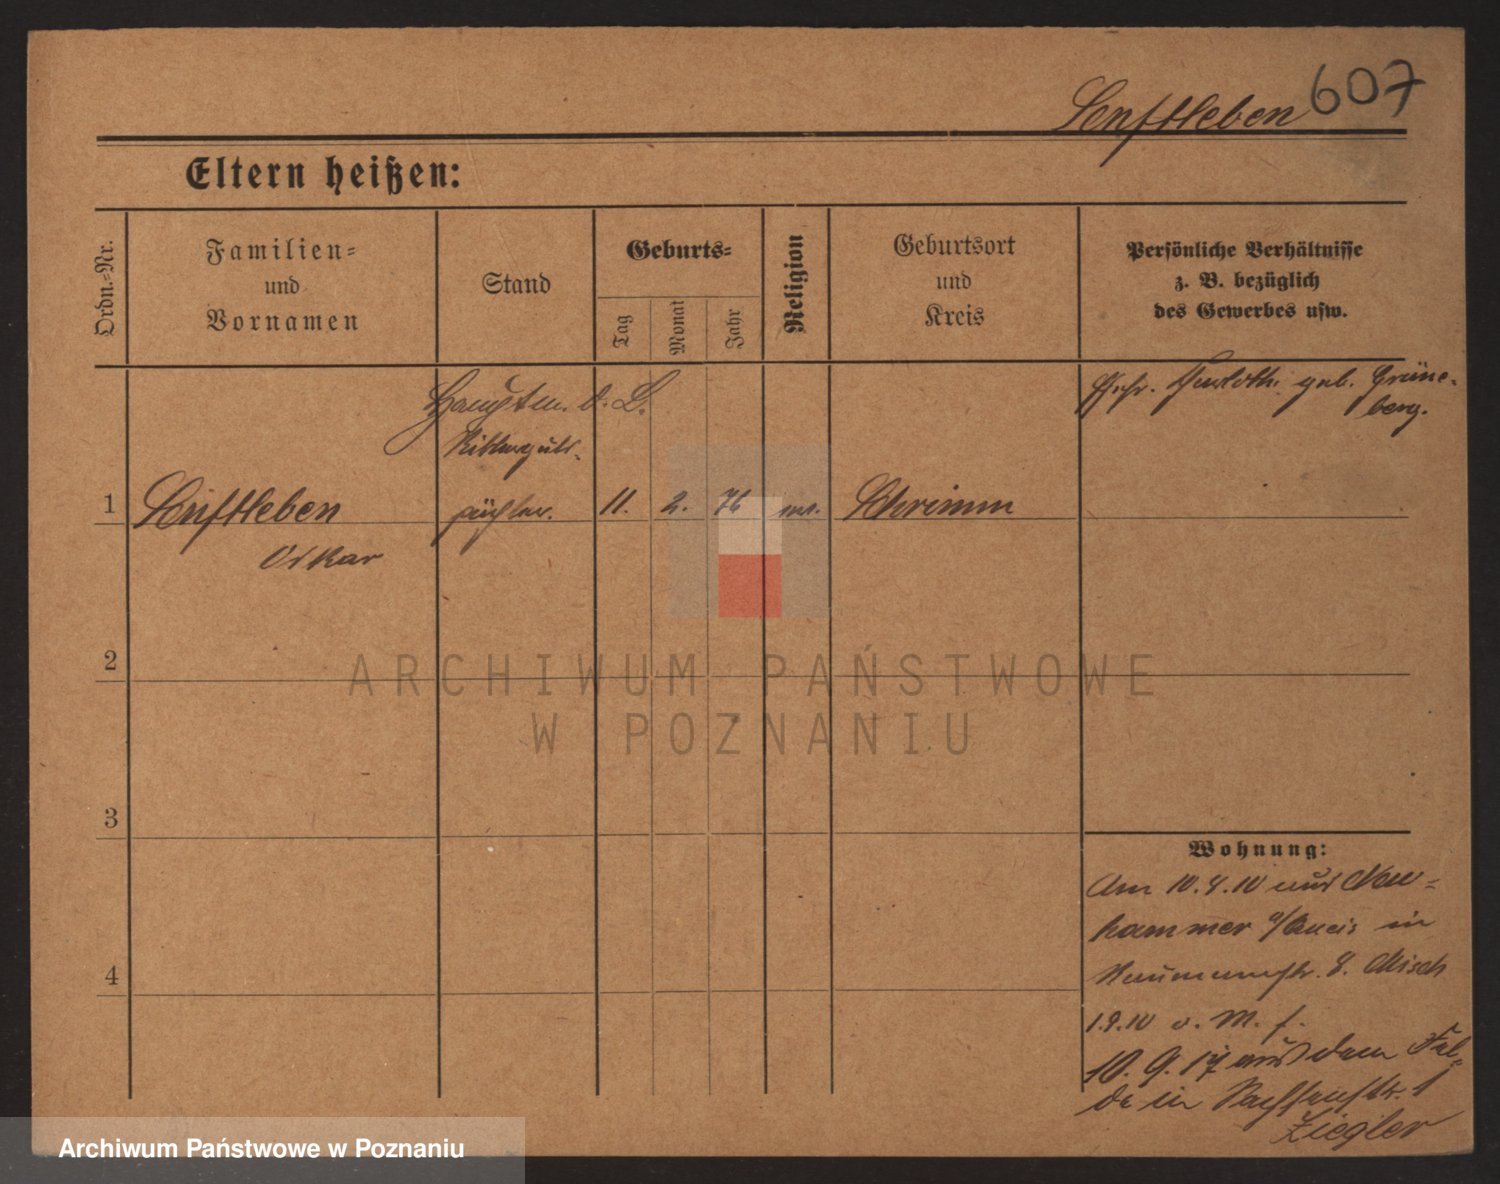 Senftleben 607
Eltern heißen:
Ordn.-Nr.
Familien-
und
Vornamen
Stand
Geburts-
Tag
Monat
Jahr
Religion
Geburtsort
und
Kreis
Persönliche Verhältnisse
z. B. bezüglich
des Gewerbes usw.
Hauptm. d. L.
Ritterguts-
pächter.
geb. Grüne-
berg.
1 Senftleben 11. 2. 76 Schrimm
Oskar
2
3
4
Wohnung:
Am 10.8.10 aus Neu-
hammer a/Queis in
Naumannstr. 8. Misch
1.9.10 v. M. f.
10. 9. 17 aus dem Fel-
de in 1
Ziegler
ARCHIWUM PAŃSTWOWE
W POZNANIU
Archiwum Państwowe w Poznaniu